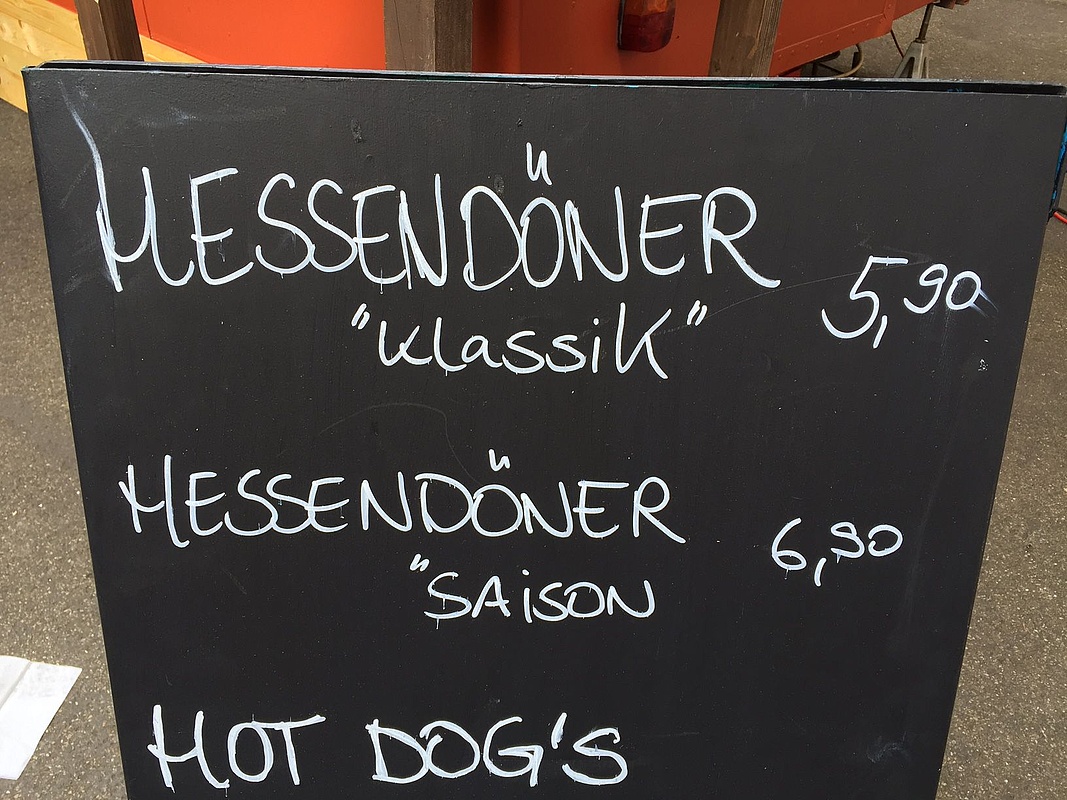 HESSENDÖNER 5,90
"Klassik"
HESSENDÖNER 6,90
"SAISON
HOT DOG'S